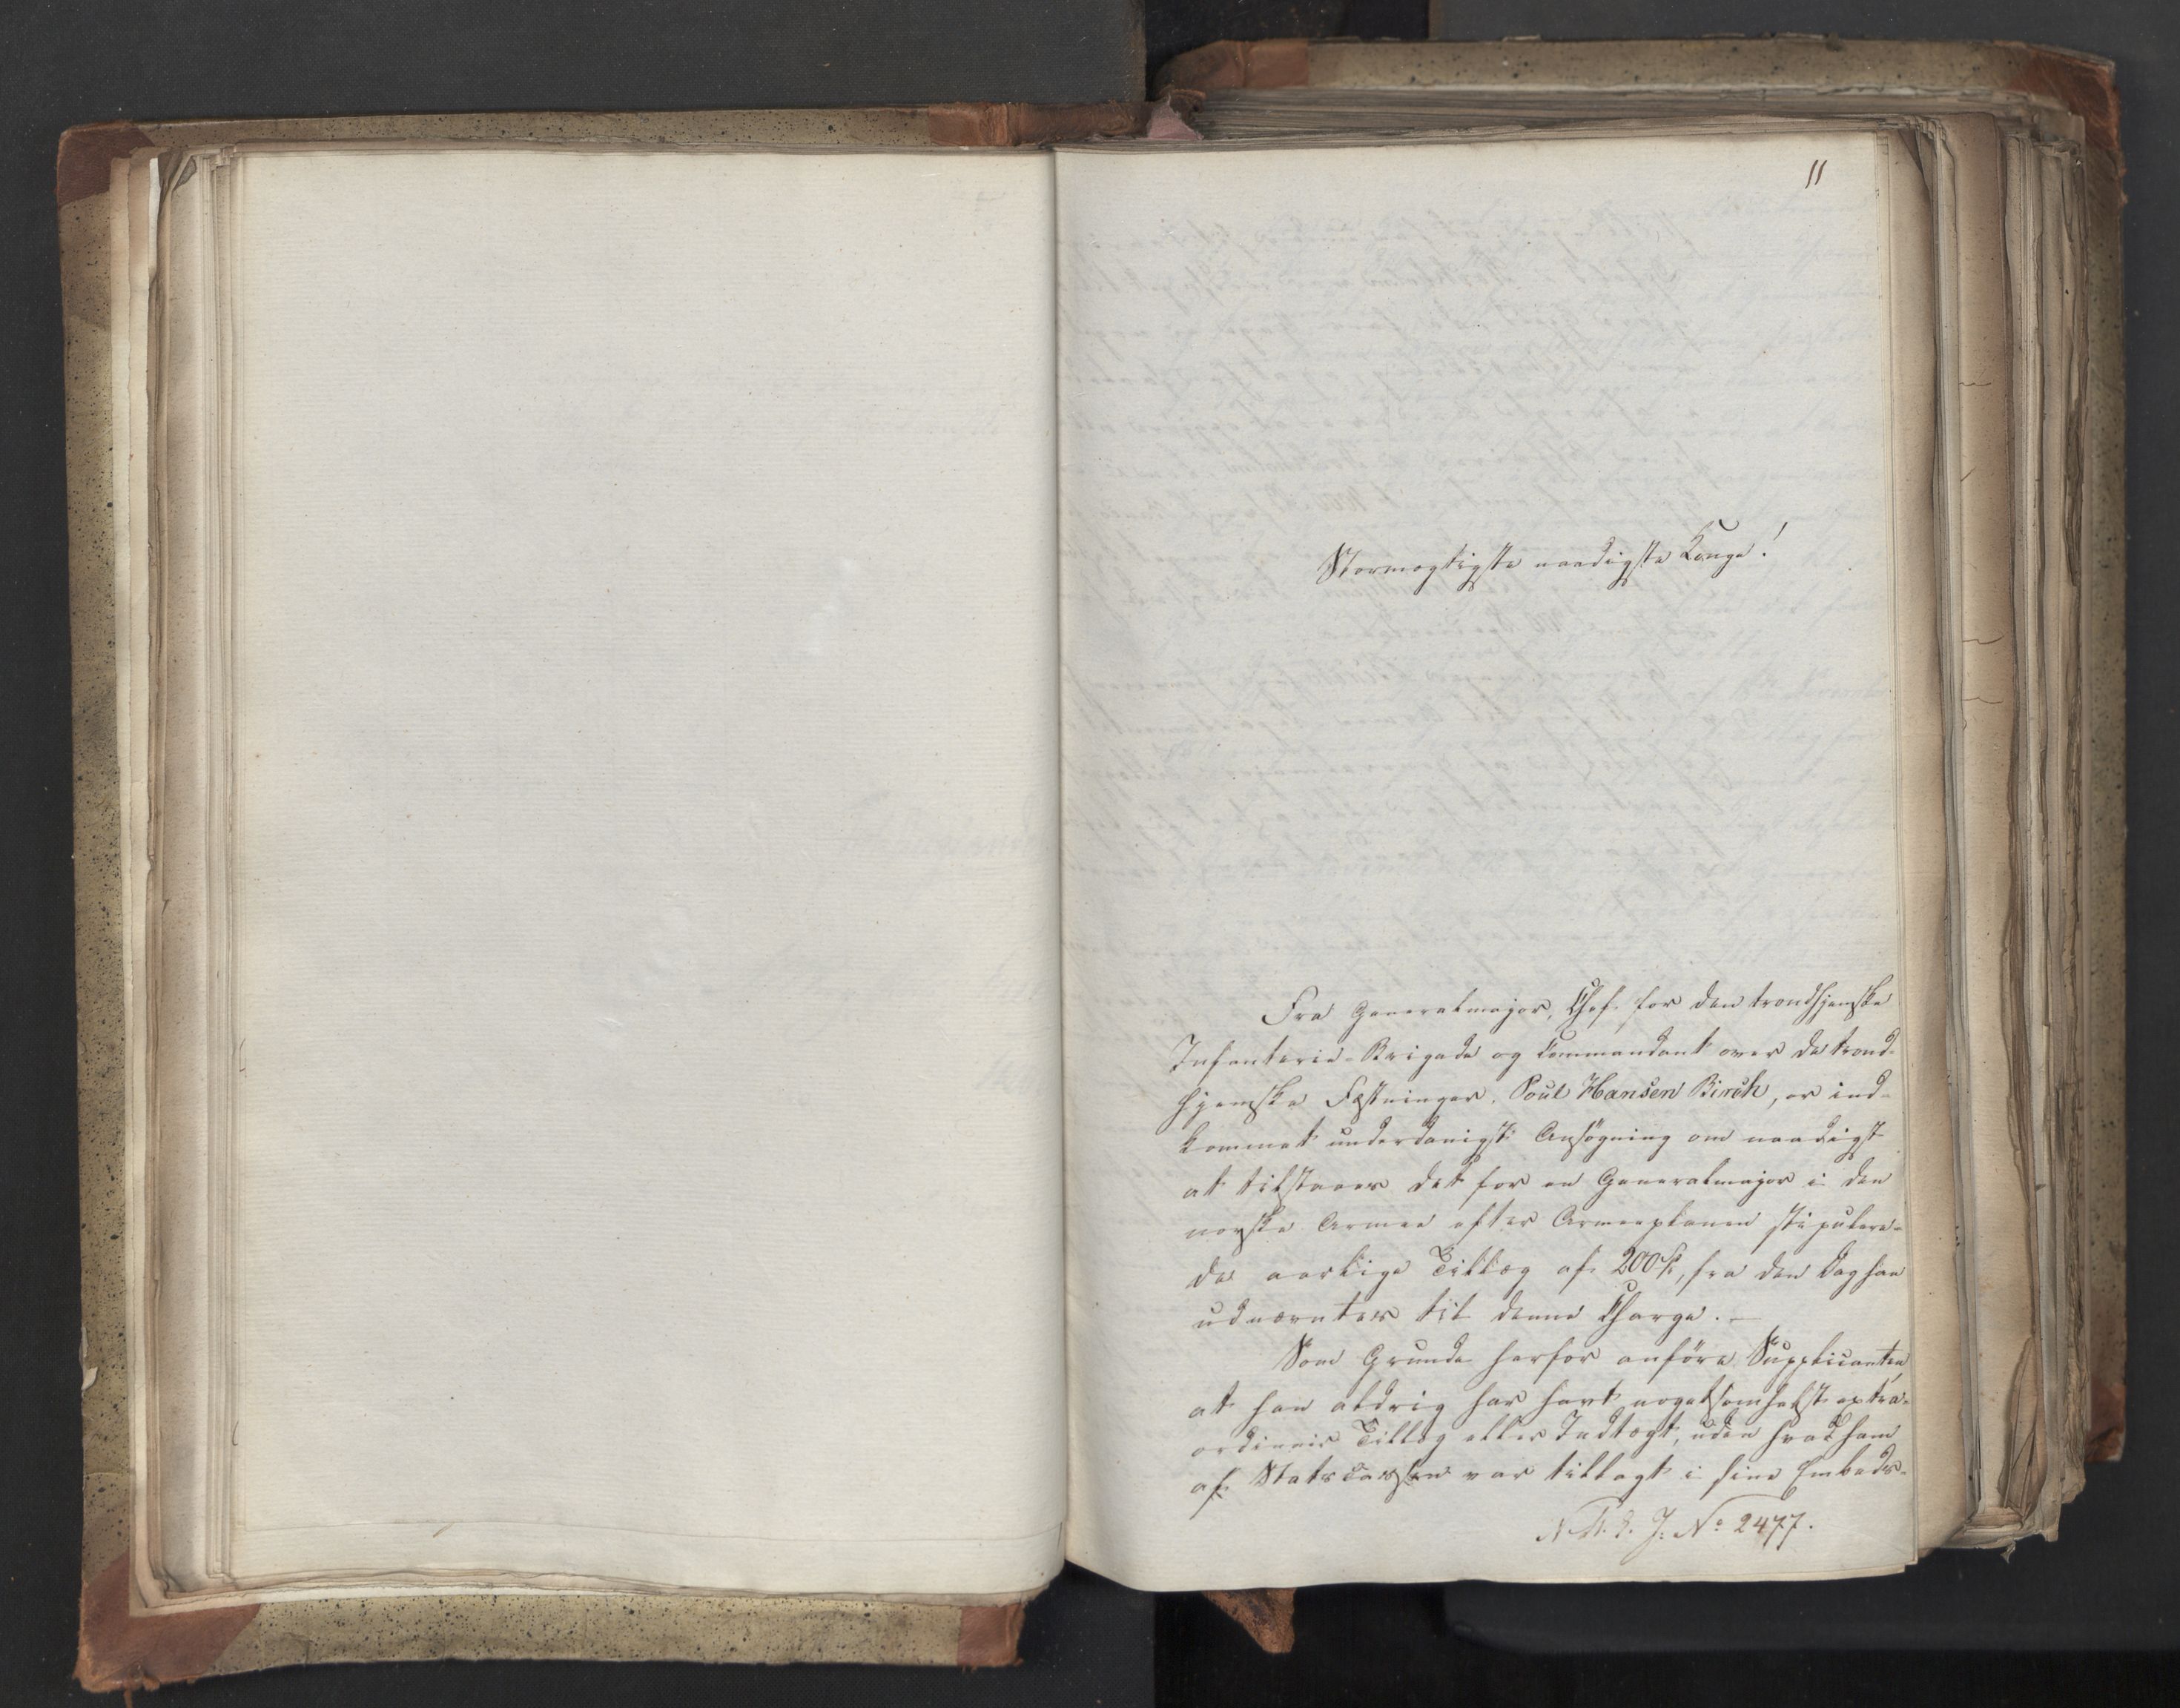 11
Stormægtigste naadigste Konge!
Fra Generalmajor, Chef for den trondhjemske
Infanterie-Brigade og Commandant over de trond-
hjemske Fæstninger, Poul Hansen Birch, er ind-
kommet underdanigst Ansögning om naadigst
at tilstaaes det for en Generalmajor i den
norske Armee efter Armeeplanen stipulere-
de aarlige Tillæg af 200 Sp, fra den Dag han
udnævntes til denne Charge. —
Som Grunde herfor anföre Supplicanten,
at han aldrig har havt nogetsomhelst extra-
ordinair Tillæg eller Indtægt, uden hvad ham
af Statscassen var tillagt i sine Embeds-
J. No 2477.